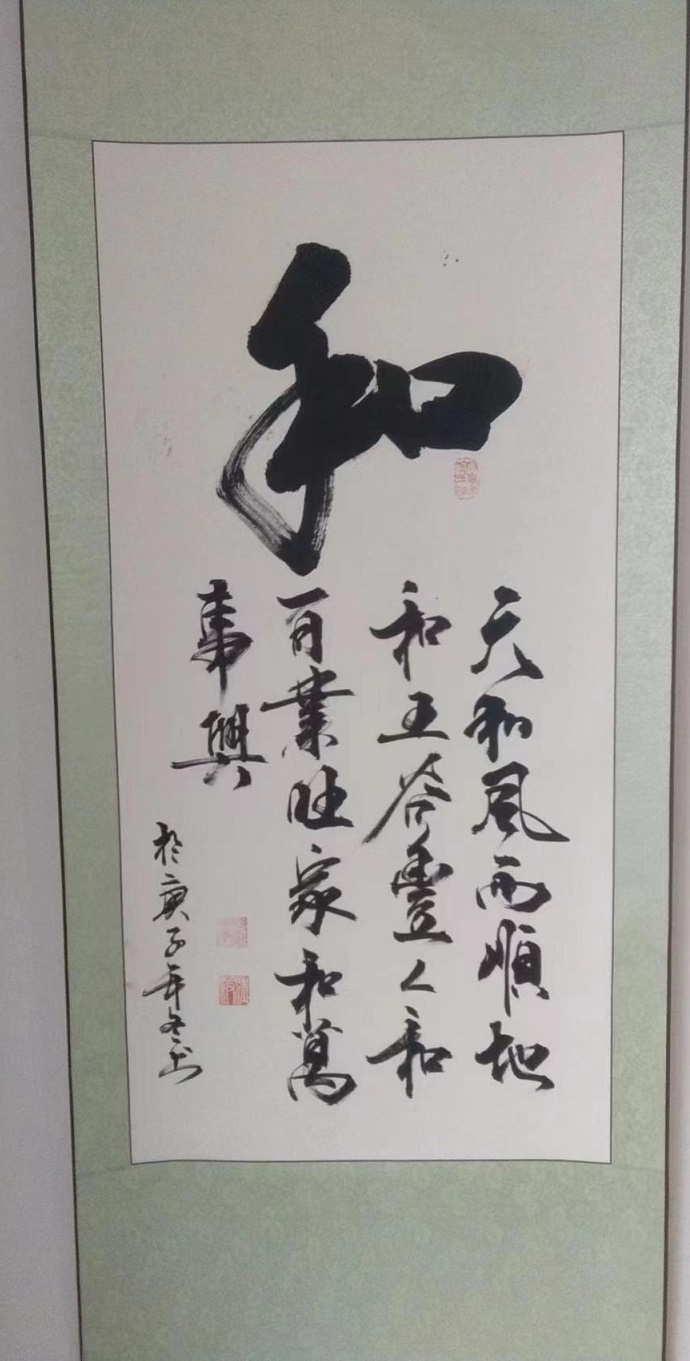 和
天和風雨順地
和五谷豐人和
百業旺家和萬
事興
於庚子年冬